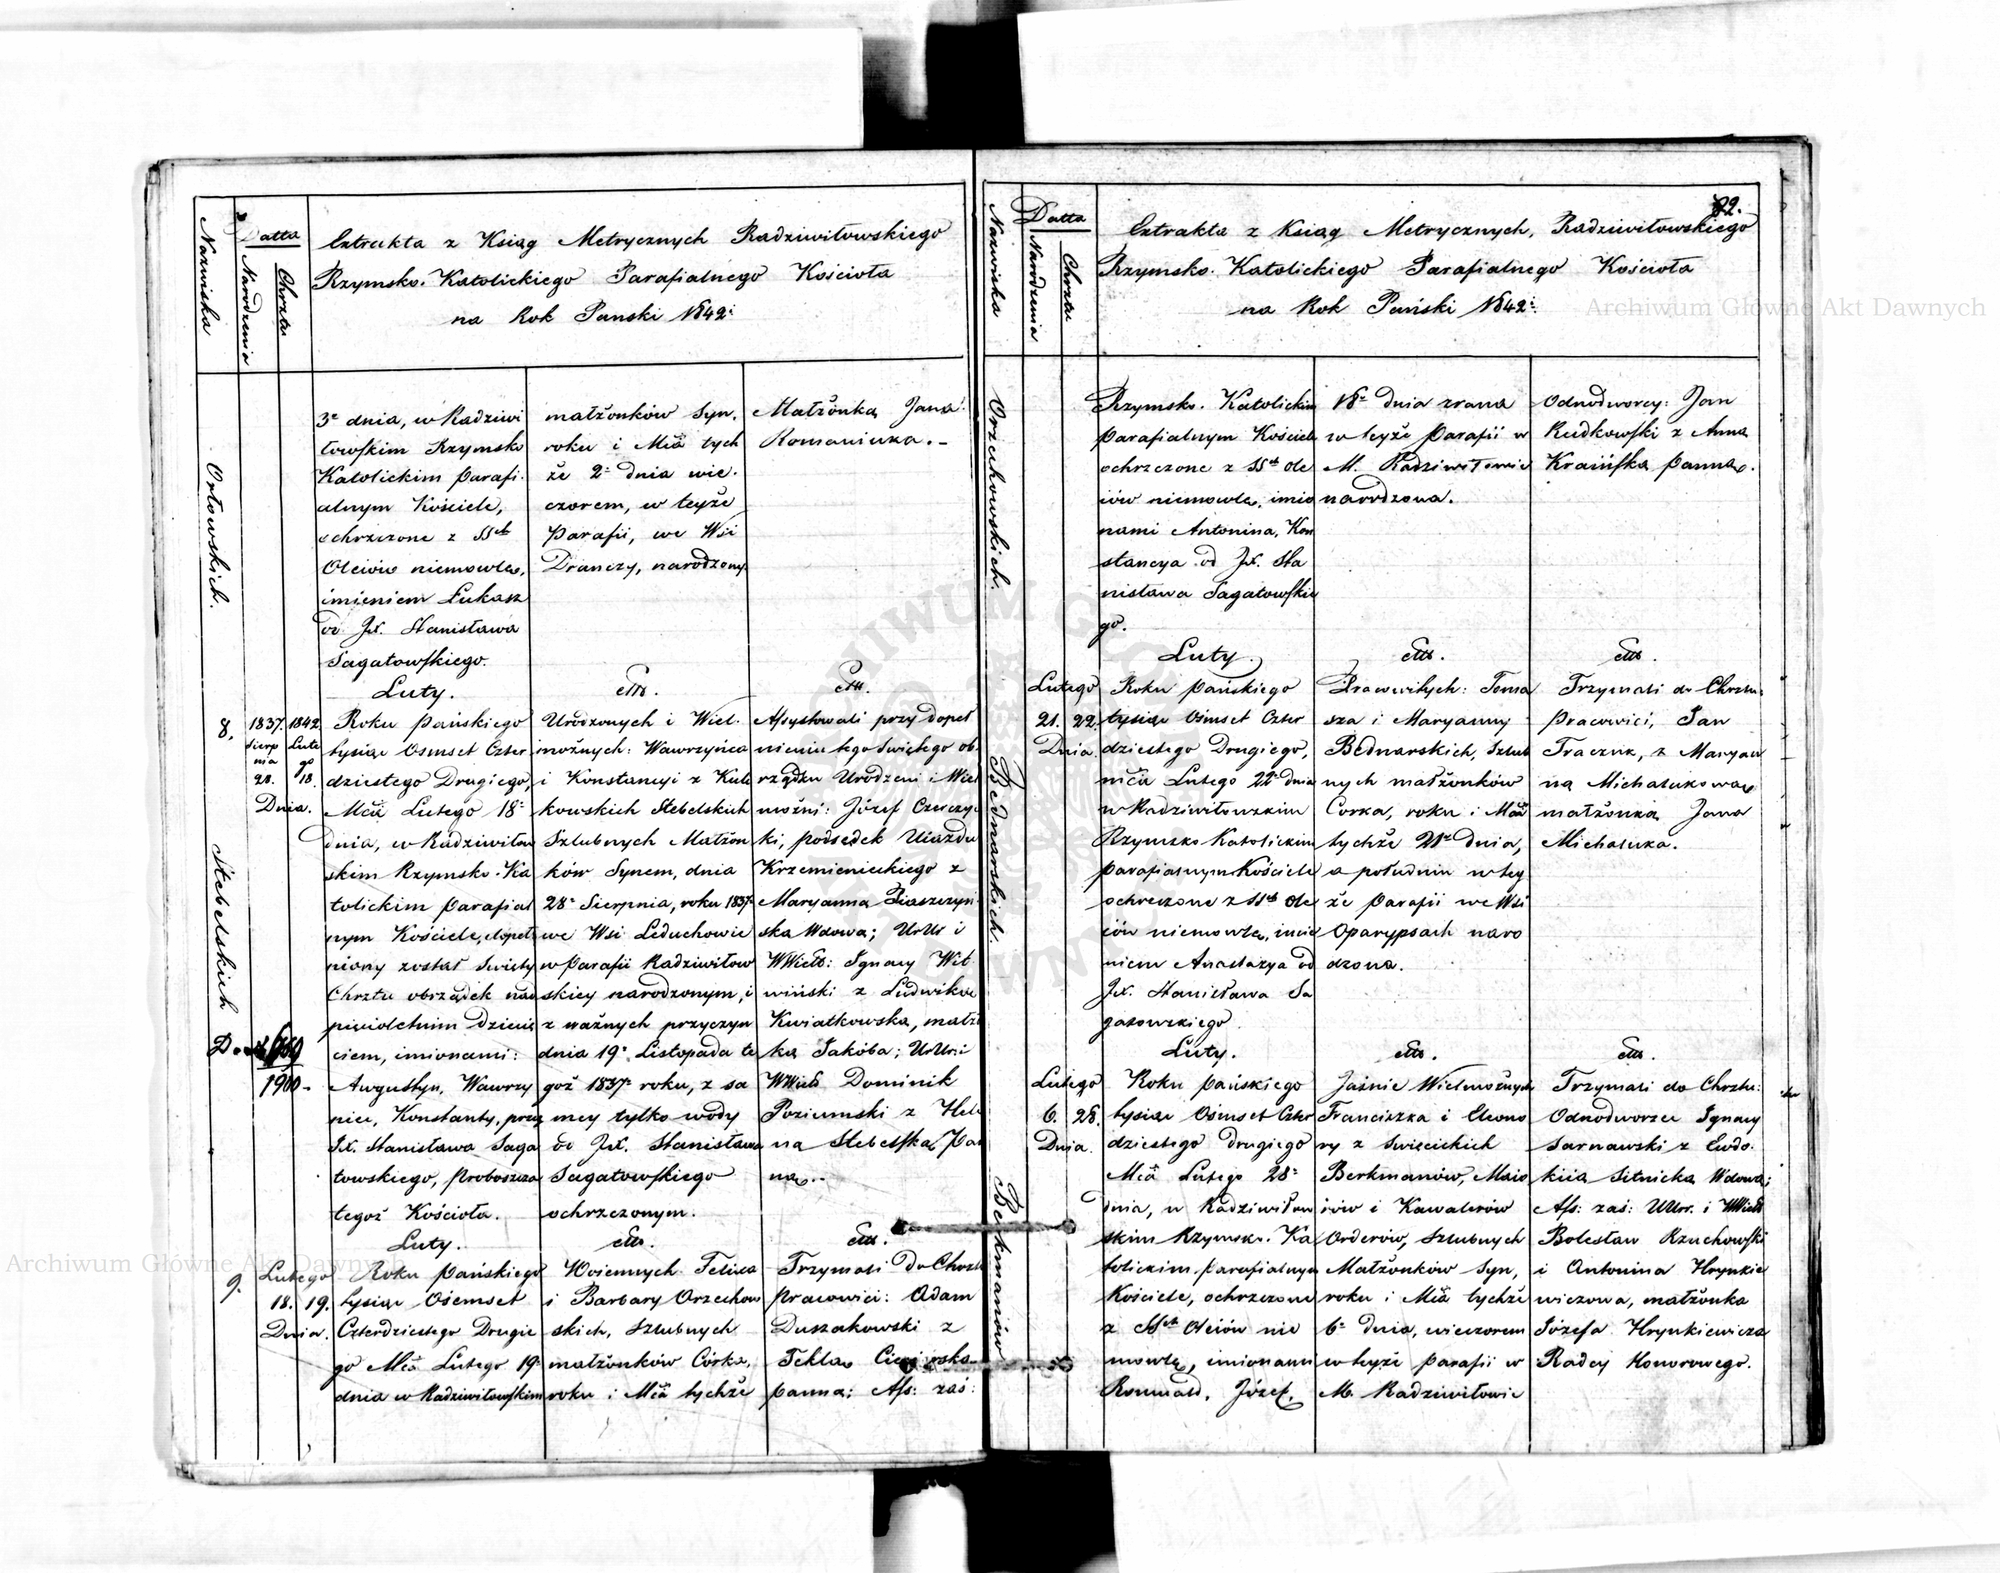 Nazwiska
Datta
Narodzenia
Chrztu
Extrakta z Ksiąg Metrycznych Radziwiłowskiego
Rzymsko-Katolickiego Parafialnego Kościoła
na Rok Panski 1842.
Orłowskich.
3º dnia, w Radziwi
łowskim Rzymsko
Katolickim Parafi-
alnym Kościele,
ochrzczone z SSch
Oleiów niemowle,
imieniem Łukasz
od Jx. Stanisława
Sagatowskiego.
małżonków syn,
roku i Mca tych
że 2º dnia wie-
czorem, w teyże
Parafii, we Wsi
Dranczy, narodzony
Małżonką Jana
Romaniuka.
Luty.
8.
Stebelskich
1837. 1842.
Sierp
nia
28.
Lute
go
18.
Dnia.
1900
Roku Pańskiego
tysiąc Osmset Czter
dziestego Drugiego,
Mca Lutego 18º
dnia, w Radziwiłow
skim Rzymsko-Ka
tolickim parafial
nym Kościele, dopeł
niony został Święty
Chrztu obrządek nad
pięcioletnim dziecię
ciem, imionami:
Augustyn, Wawrzy
niec, Konstanty, przez
Jx. Stanisława Saga
towskiego, Proboszcza
tegoż Kościoła.
Urodzonych i Wiel-
możnych: Wawrzyńca
i Konstancyi z Kule
kowskich Stebelskich
Szlubnych Małżon
ków Synem, dnia
28º Sierpnia, roku 1837º
we Wsi Leduchowie
w Parafii Radziwiłow
skiey narodzonym, i
z ważnych przyczyn
dnia 19º Listopada te
goż 1837º roku, z sa
mey tylko wody
od Jx. Stanisława
Sagatowskiego
ochrzczonym.
Assystowali przy dopeł
nieniu tego Świętego ob-
rządku Urodzeni i Wiel
możni: Józef Czerczyc
ki, podsędek Uiazdu
Krzemienieckiego z
Maryanną Piaszczyń
ska Wdowa; UrUr i
WWielb: Ignacy Wit
wiński z Ludwiką
Kwiatkowską, małż
ką Jakóba; UrUr: i
WWielb Dominik
Poziumski z Hele
ną Stebelską Pan
ną.
Luty.
9.
Lutego
18. 19.
Dnia.
Roku Pańskiego
tysiąc Ośemset
Czterdziestego Drugie
go Mca Lutego 19º
dnia w Radziwiłowskim
Woiennych Felixa
i Barbary Orzechow
skich, szlubnych
małżonków Córka,
roku i Mca tychże
Trzymali do Chrztu
Pracowici: Adam
Duszakowski z
Teklą
panna; Ass: zaś:
82.
Nazwiska
Datta
Narodzenia
Chrztu
Extrakta z Ksiąg Metrycznych, Radziwiłowskiego
Rzymsko-Katolickiego Parafialnego Kościoła
na Rok Pański 1842.
Orzechowskich.
Rzymsko-Katolickim
parafialnym Kościele
ochrzczone z SSch Ole
iów niemowle, imio
nami Antonina, Kon
stancya od Jx. Sta
nisława Sagatowskie
go.
18º dnia zrana
w teyże Parafii w
M. Radziwiłowie
narodzona.
Odnodworcy: Jan
Rudkowski z Anną
Kraińską panną.
Luty.
Bednarskich.
Lutego
21. 22.
Dnia.
Roku Pańskiego
tysiąc Ośmset Czter
dziestego Drugiego,
mca Lutego 22º dnia
w Radziwiłowskim
Rzymsko Katolickim
parafialnym Kościele
ochrzczone z SSch Ole
iów niemowle, imie
niem Anastazya od
Jx. Stanisława Sa
gatowskiego.
Pracowitych: Toma
sza i Maryanny
Bednarskich, Szlub
nych małżonków
Corka, roku i Mca
tychże 21º dnia,
o południu w tey
że Parafii we Wsi
Oparypsach naro
dzona.
Trzymali do Chrztu
Pracowici, Jan
Tracznk, z Maryan
ną Michalukową
małżonką Jana
Michaluka.
Luty.
Berkmanów
Lutego
6. 28.
Dnia.
Roku Pańskiego
tysiąc Ośmset Czter
dziestego drugiego
Mca Lutego 28º
dnia, w Radziwiłow
skim Rzymsko-Ka
tolickim parafialnym
Kościele, ochrzczone
z SSch Oleiów nie
mowle, imionami
Romuald, Józef,
Jaśnie Wielmożnych
Franciszka i Eleono
ry z Święcickich
Berkmanów, Maio
rów i Kawalerów
Orderów, Szlubnych
Małżonków Syn,
roku i Mca tychże
6º dnia, wieczorem
w teyże parafii w
M. Radziwiłowie
Trzymali do Chrztu:
Odnodworzec Ignacy
Sarnawski z Ewdo-
kiia Sitnicka Wdowa;
Ass: zaś: UUr. i WWielb
Bolesław Rzuchowski
i Antonina Hrynkie
wiczowa, małżonka
Józefa Hrynkiewicza
Radcy Honorowego.
Archiwum Główne Akt Dawnych
Archiwum Główne Akt Dawnych